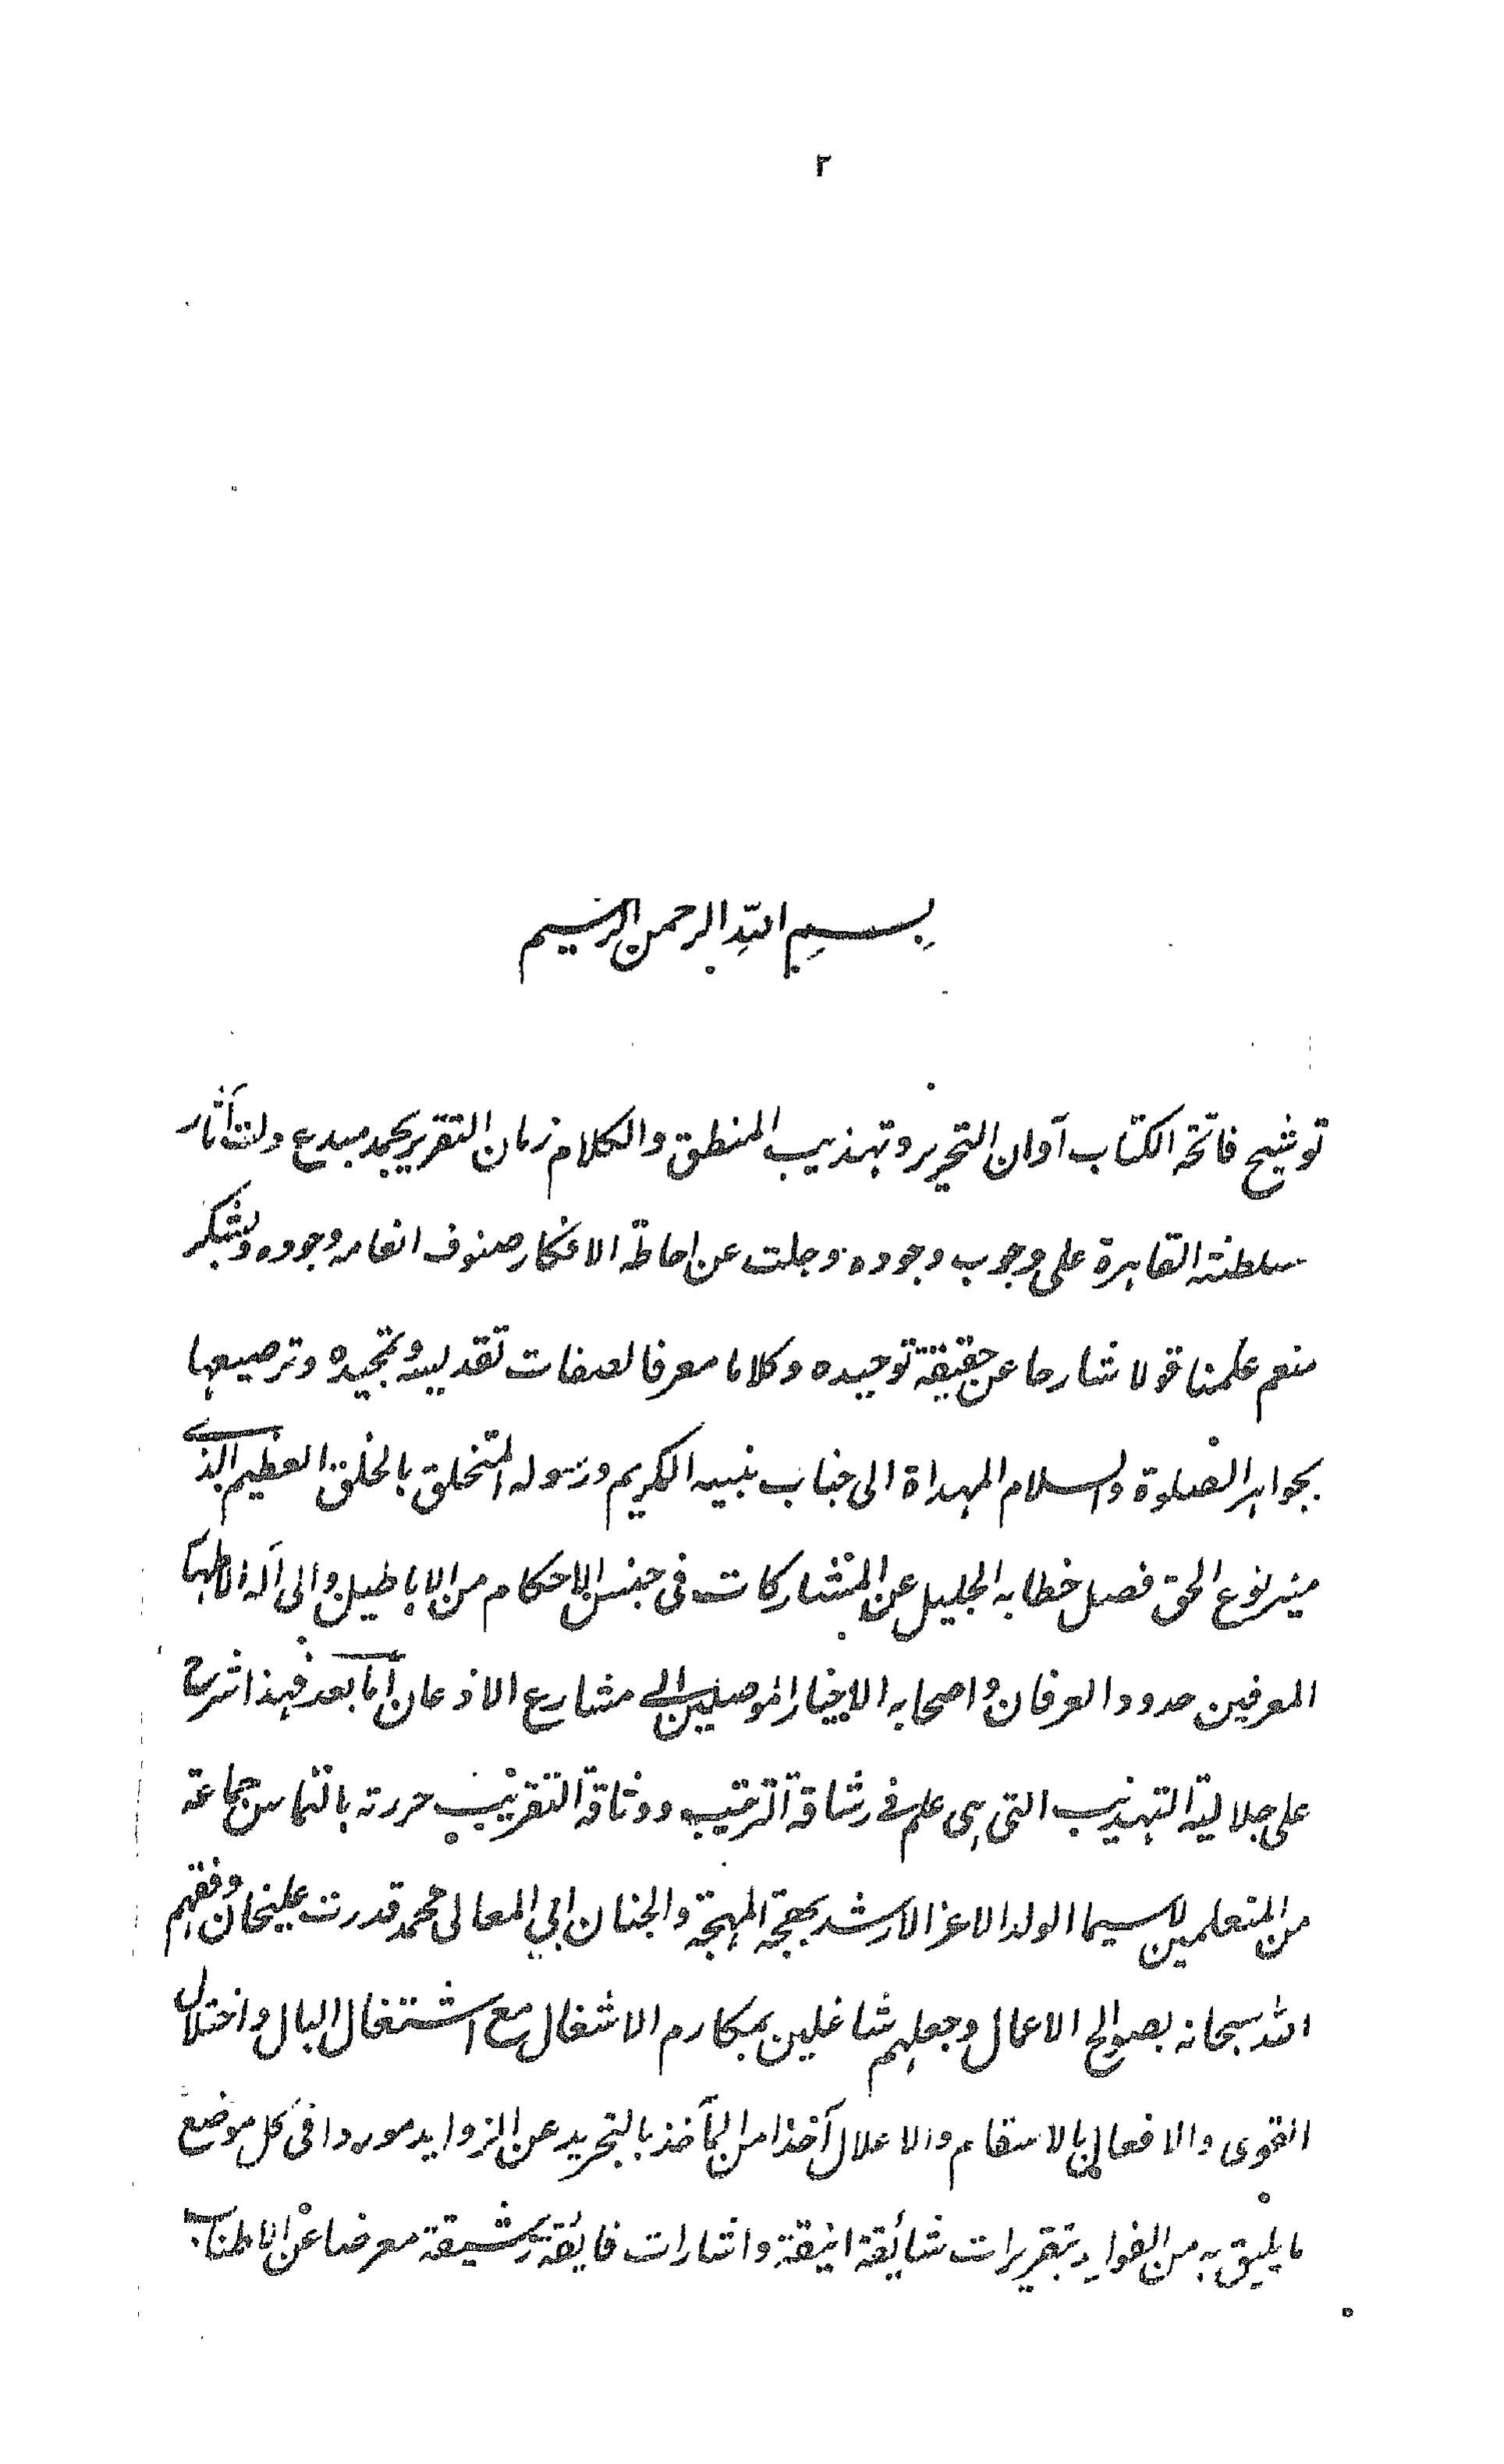 ٢
بسم الله الرحمن الرحيم
توشيح فاتحة الكتاب آوان التحرير وتهذيب المنطق والكلام زمان التقرير بحمد مبدع دلت آثار
سلطنته القاهرة على وجوب وجوده وجلت عن احاطة الافكار صنوف انعامه وجوده وبشكر
منعم علمنا قولا شارحا عن حقيقة توحيده وكلاما معرفا لصفات تقديسه وتمجيده وترصيعها
بجواهر الصلوة والسلام المهداة الى جناب نبيه الكريم ورسوله المتخلق بالخلق العظيم الذي
ميز نوع الحق فصل خطابه الجليل عن المتشاركات في جنس الاحكام من الاباطيل والى آله الاطهار
المعرفين حدود العرفان واصحابه الاخيار الموصلين الى مشارع الاذعان أما بعد فهذا شرح
على جلالية التهذيب التي هي علم في رشاقة الترتيب ووثاقة التقريب حررته بالتماس جماعة
من المتعلمين لاسيما الولد الاعز الارشد بهجة المهجة والجنان ابي المعالي محمد قدرت عليخان وفقهم
الله سبحانه بصوالح الاعمال وجعلهم شاغلين بمكارم الاشغال مع اشتغال البال واختلال
القوى والافعال بالاسقام والاعلال آخذا من المآخذ بالتجريد عن الزوايد موردا في كل موضع
ما يليق به من الفوايد بتقريرات شائقة انيقة واشارات فايقة رشيقة معرضا عن الاطناب